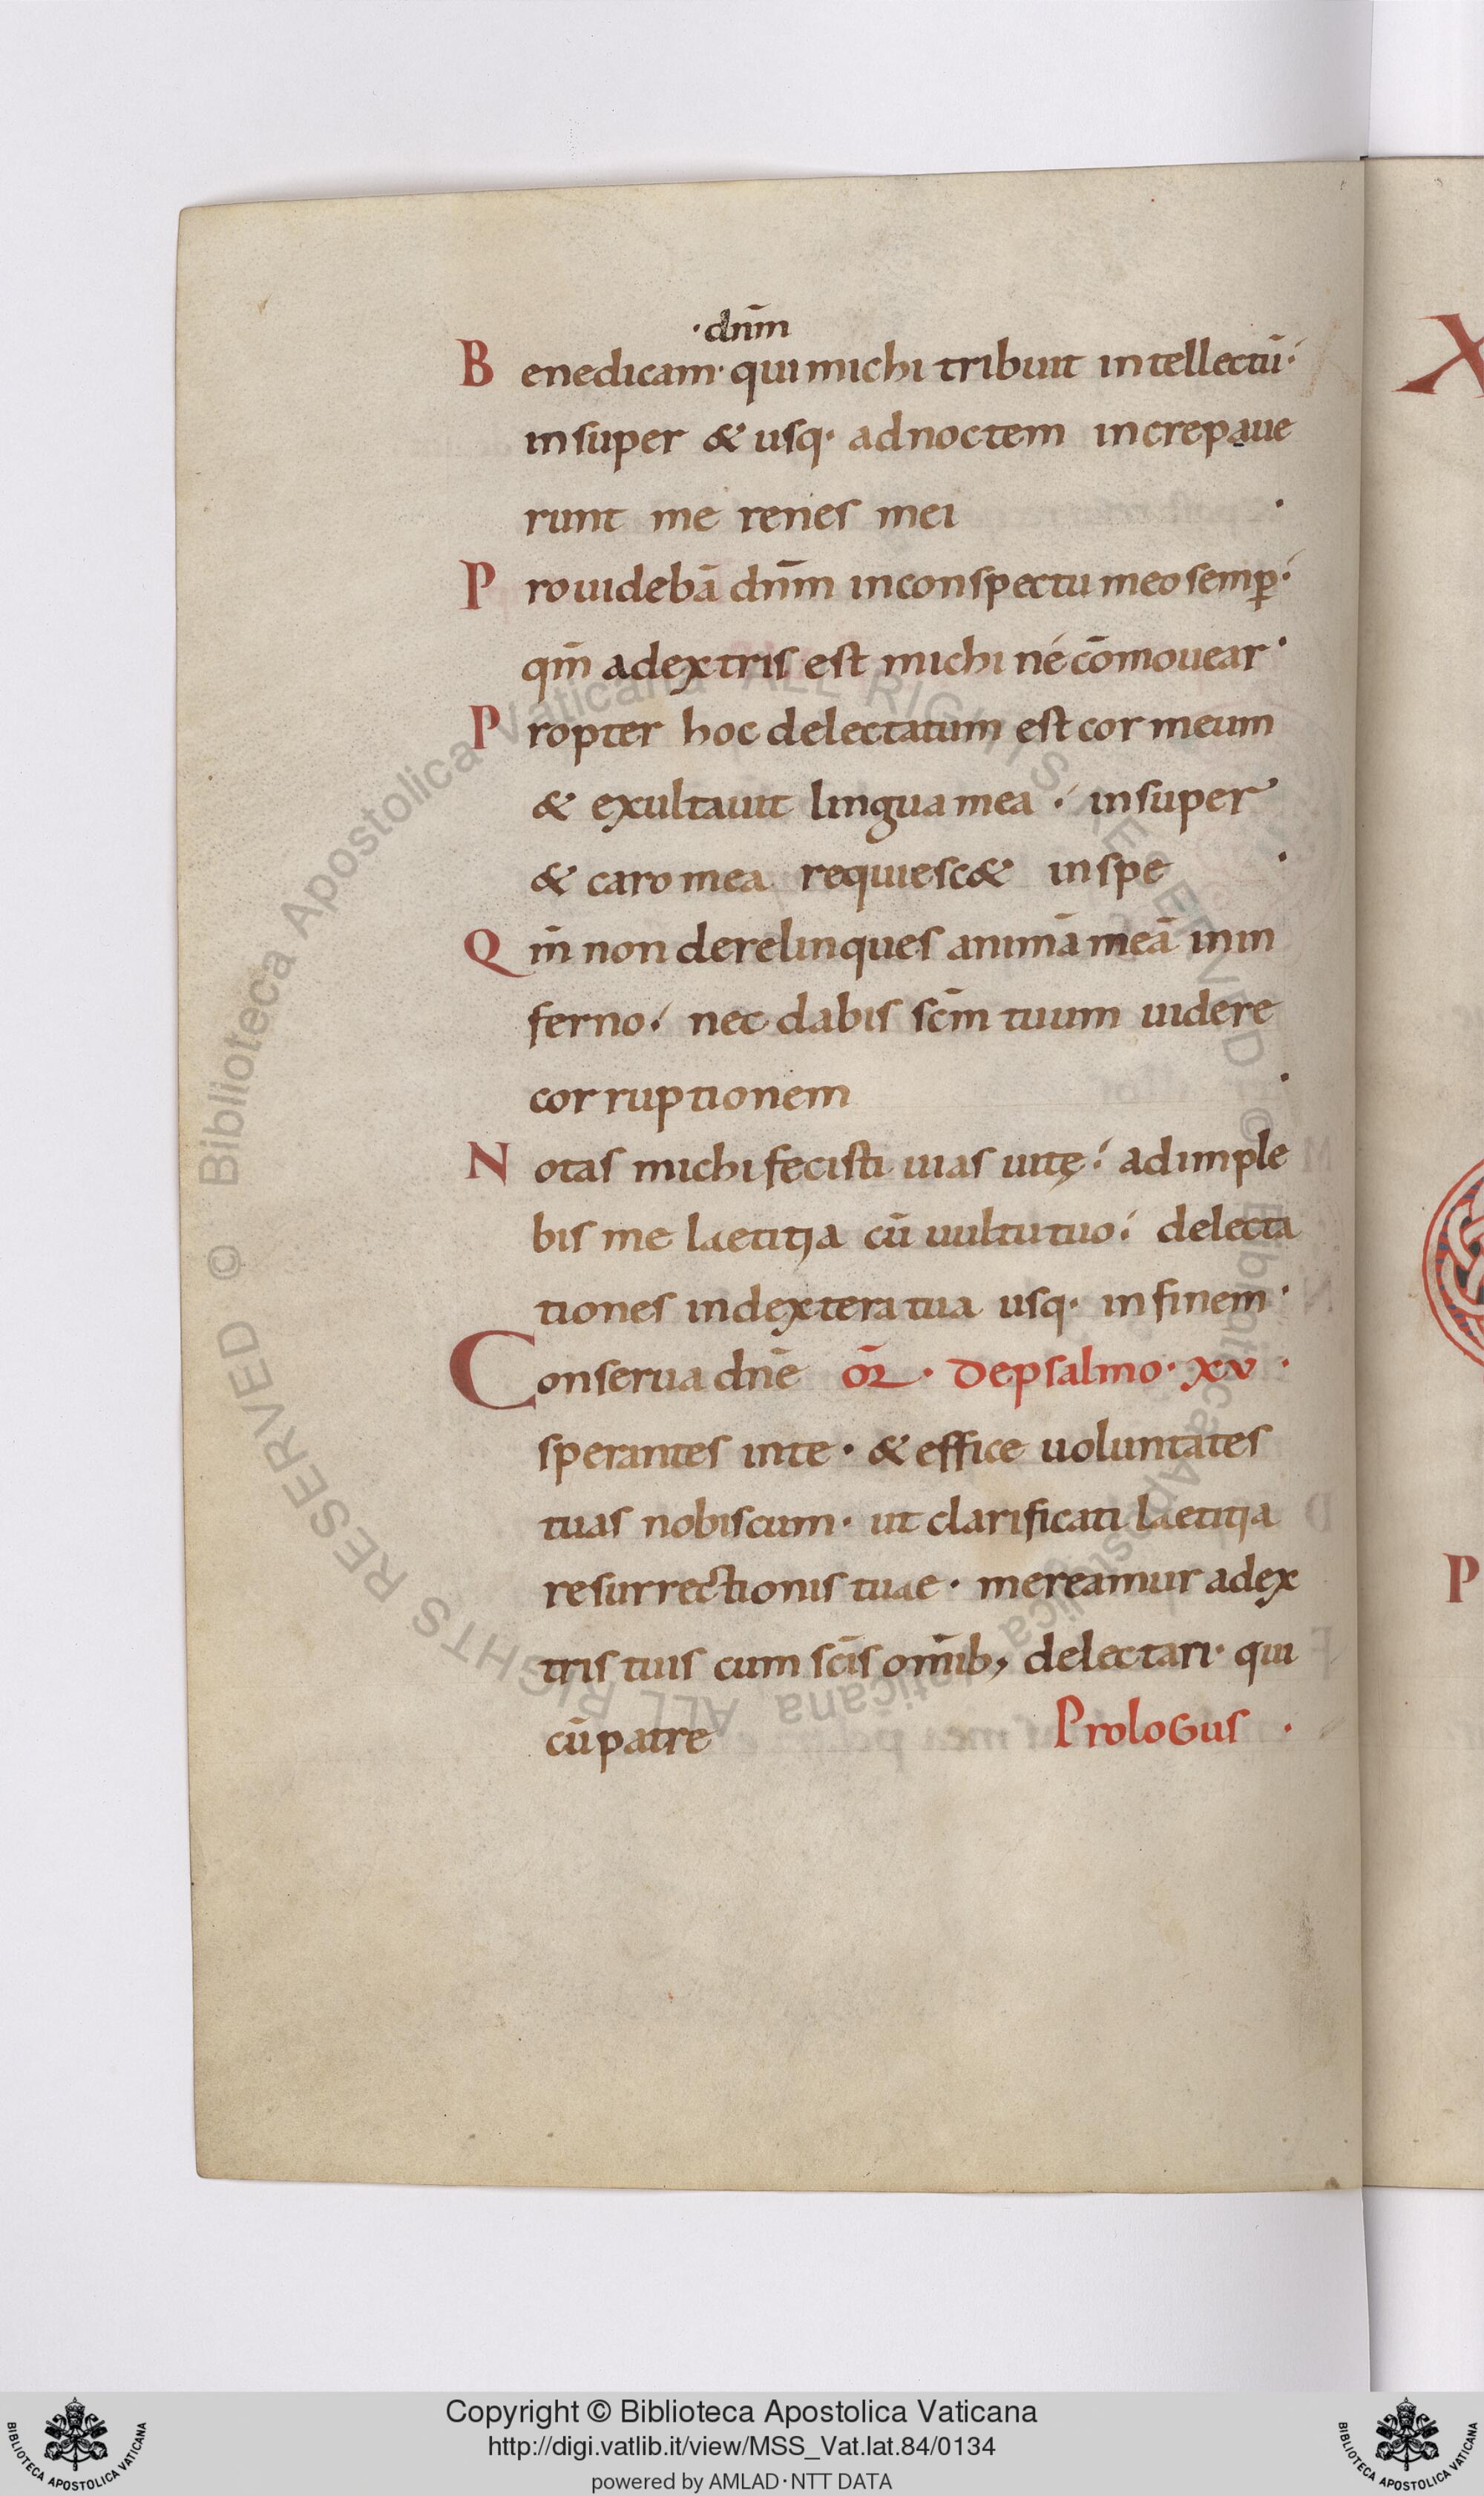 ·dñm
Benedicam· qui michi tribuit intellectū·
insuper & usq· ad noctem increpaue
runt me renes mei ·
Prouidebā dñm in conspectu meo semp̱·
qm̄ a dextris est michi né cōmouear·
Propter hoc delectatum est cor meum
& exultauit lingua mea · insuper
& caro mea requiesc& in spe ·
Qm̄ non derelinques animā meā in in
ferno· nec dabis scm̄ tuum uidere
corruptionem ·
Notas michi fecisti uias uitę· adimple
bis me laetitia cū uultu tuo· delecta
tiones in dextera tua usq· in finem·
Conserua dnē or̄ · De psalmo · xv ·
sperantes in te · & effice uoluntates
tuas nobiscum · ut clarificati laetitia
resurrectionis tuae · mereamur a dex
tris tuis cum scīs omīb; delectari· qui
cū patre Prologus ·
X
P
© Biblioteca Apostolica Vaticana ALL RIGHTS RESERVED © Biblioteca Apostolica Vaticana ALL RIGHTS RESERVED
Copyright © Biblioteca Apostolica Vaticana
http://digi.vatlib.it/view/MSS_Vat.lat.84/0134
powered by AMLAD·NTT DATA
BIBLIOTECA APOSTOLICA VATICANA
BIBLIOTECA APOSTOLICA VATICANA